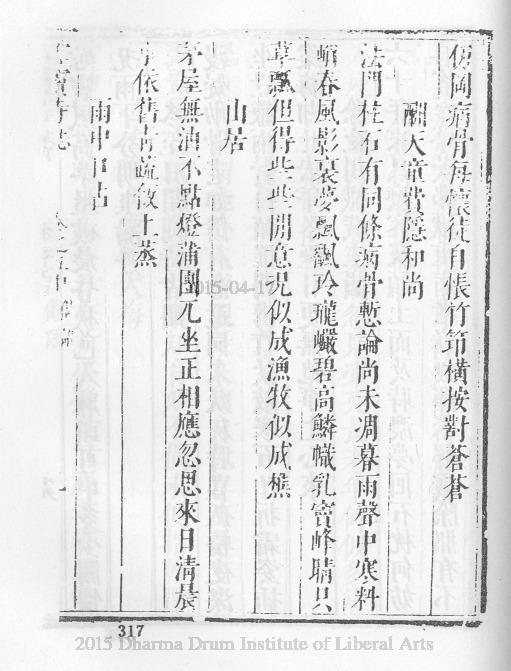 仿岡病骨每懷徒自悵竹笻橫按對蒼蒼
酬天童費隱和尚
法門柱石有同條病骨慙論尚未凋暮雨聲中寒料
峭春風影裏夢飄飄玲瓏巇碧高鱗幟乳竇峰晴只
草瓢但得些些閒意況似成漁牧似成樵
山居
茅屋無油不點燈蒲團兀坐正相應忽思來日清晨
依舊青蔬敎上蒸
雨中
寺志
2015-04-1
317
2015 Dharma Drum Institute of Liberal Arts